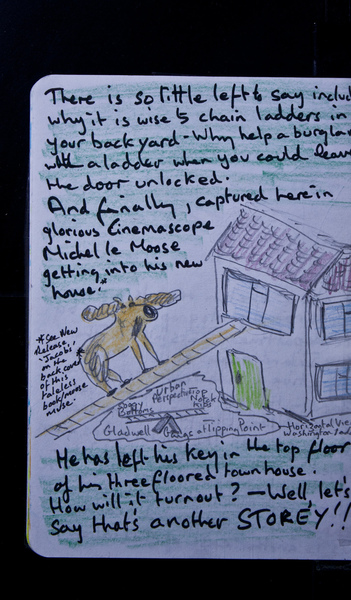 There is so little left to say includ
why it is wise to chain ladders in
your backyard - Why help a burglar
with a ladder when you could leave
the door unlocked.
And finally, captured here in
glorious Cinemascope
Michelle Moose
getting into his new
house!*
*See New
Release,
'Jacobs'
on the
back cover
of this
book/morse
muse.
Urban
Perspective
Soggy
Bottoms
Gladwell
Gangs at Tipping Point
Horizontal View
Washington
He has left his key in the top floor
of his three floored townhouse.
How will it turn out? - Well, let's
say that's another STOREY!!